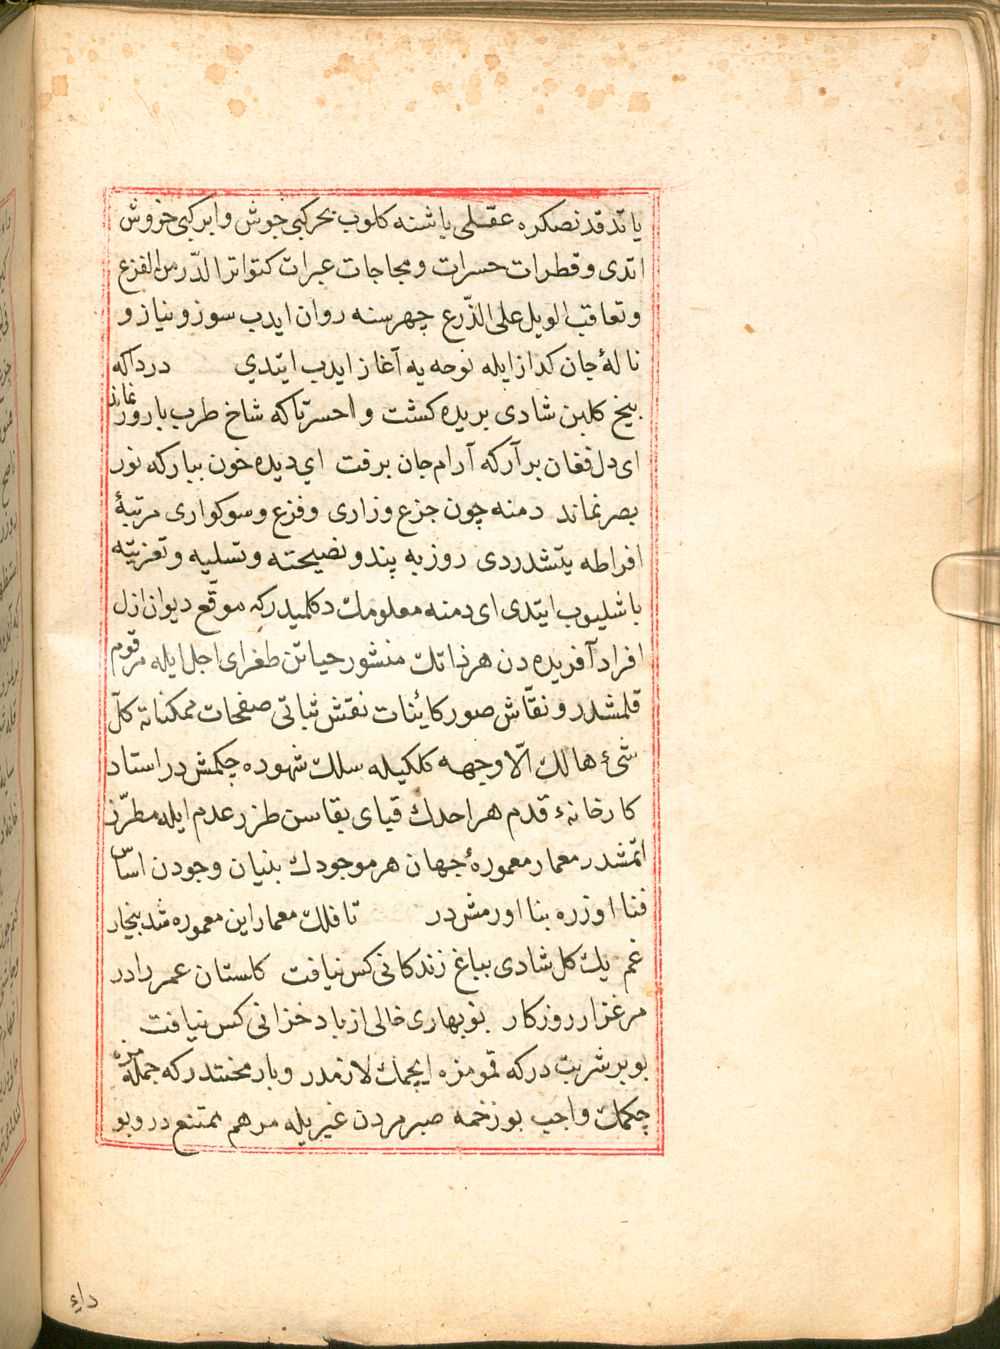 یاتدقدنصکره عقلی باشنه کلوب بحرکبی جوش وابرکبی خروش
اتدی وقطرات حسرات ومجاجات عبرات کتواترالدّرمن الفزع
وتعاقب الوبل علی الذّرع چهرسنه روان ایدب سوز ونیاز و
نالهٔ جان کدازایله نوحه یه آغاز ایدب ایتدی دردا که
بیخ کلبن شادی بریده کشت واحسرتا که شاخ طرب بارور نماند
ای دل فغان برآر که آرام جان برفت ای دیده خون ببار که نور
بصر نماند دمنه چون جزع وزاری وفزع وسوکواری مرتبهٔ
افراطه یتشدردی روزبه پند ونصیحته وتسلیه وتعزیته
باشلیوب ایتدی ای دمنه معلومك دکلمیدر که موقّع دیوان ازل
افراد آفریده دن هر ذاتك منشور حیاتن طغرای اجل ایله مرقوم
قلمشدر ونقّاش صور کاینات نقش ثباتی صفحات ممکناته کلّ
شیء هالك الّا وجهه کلکیله سلك شهوده چکمشدر استاد
کارخانهٔ قدم هر احدك قبای بقاسن طرز عدم ایله مطرّز
اتمشدر معمار معمورهٔ جهان هر موجودك بنیان وجودن اساس
فنا اوزره بنا اورمشدر تا فلك معمار این معموره شد بیخار
غم یك کل شادی بباغ زندکانی کس نیافت کلستان عمر را در
مرغزار روزکار نوبهاری خالی از باد خزانی کس نیافت
بو بر شربتدر که قمومزه ایچمك لازمدر وبار محنتدر که جمله مزه
چکمك واجب بو زخمه صبر مردن غیریله مرهم ممتنع در وبو